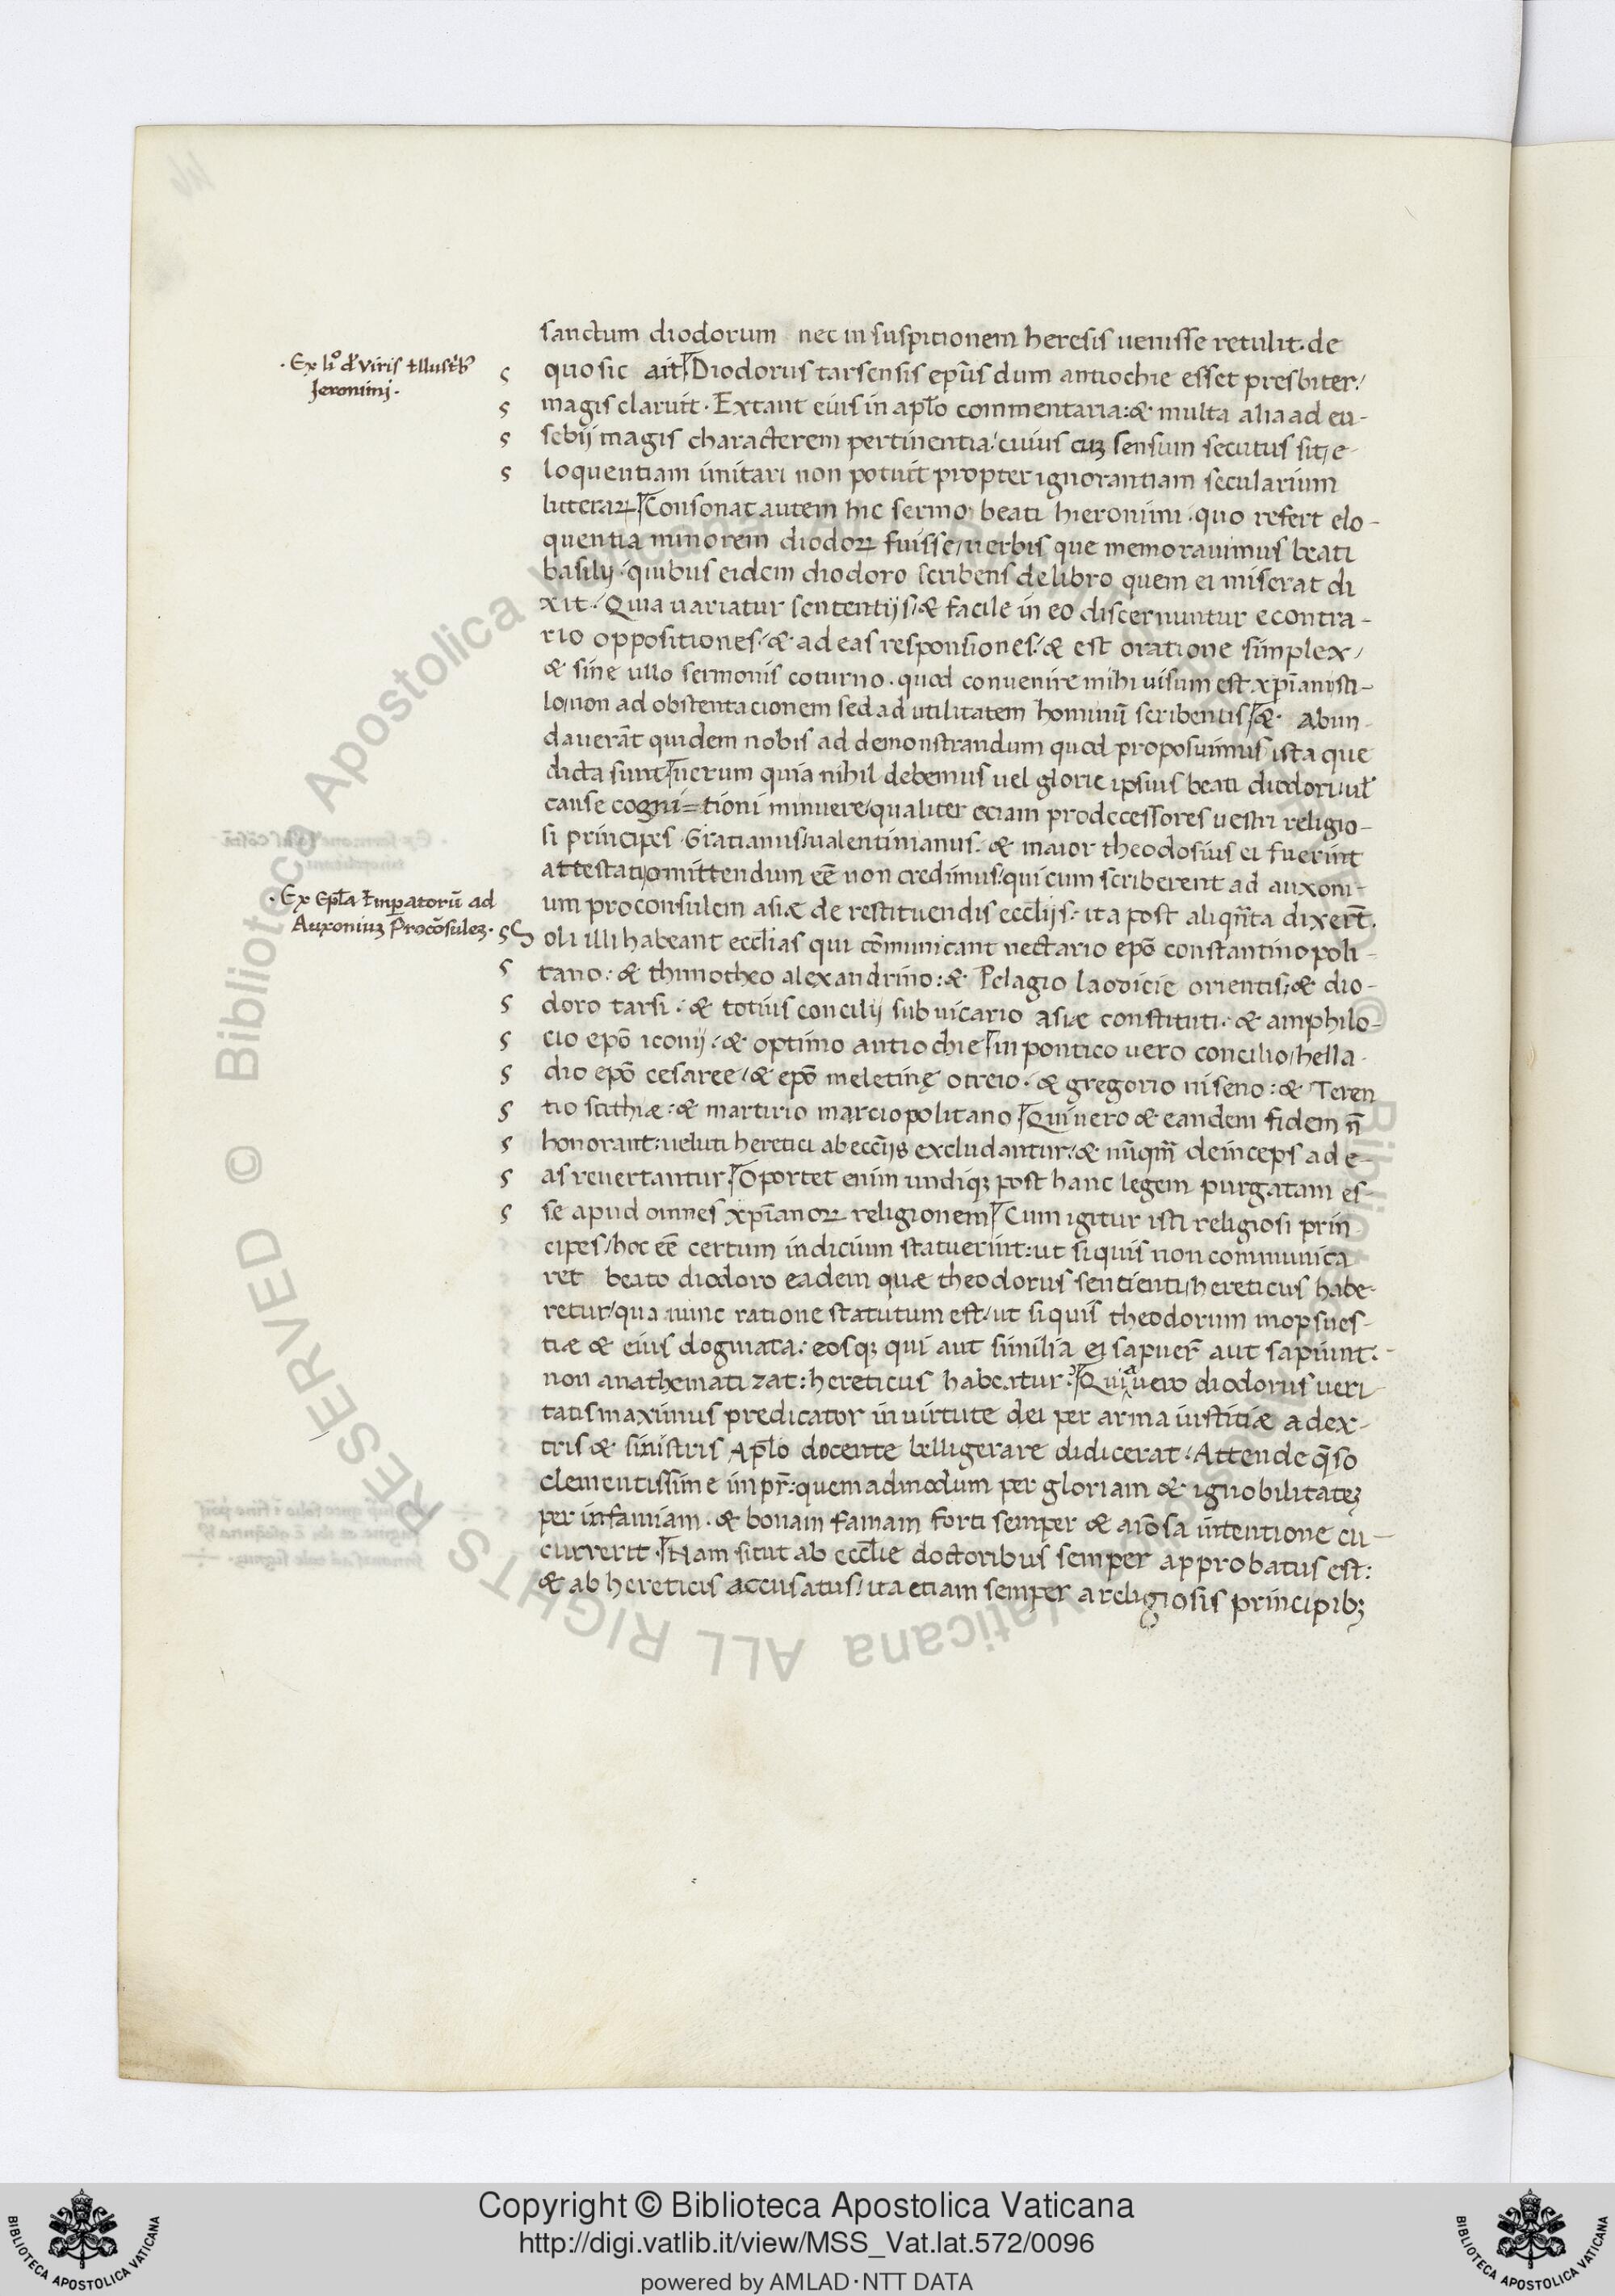 sanctum diodorum nec in suspitionem heresis uenisse retulit. de
· Ex liº d' viris illustb'
Jeronimi ·
quo sic ait Diodorus tarsensis ep̄us dum antiochie esset presbiter/
magis claruit · Extant eius in apl'o commentaria: & multa alia ad eu-
sebij magis characterem pertinentia/ cuius cuꝫ sensum secutus sit/ e-
loquentiam imitari non potuit propter ignorantiam secularium
litterarꝝ Consonat autem hic sermo beati hieronimi · quo refert elo-
quentia minorem diodorꝝ fuisse/ uerbis que memorauimus beati
basilij · quibus eidem diodoro scribens de libro quem ei miserat di
xit · Quia uariatur sententijs/ & facile in eo discernuntur econtra-
rio oppositiones/ & ad eas responsiones/ & est oratione simplex/
& sine ullo sermonis coturno · quod conuenire mihi uisum est xp̄iani sti-
lo/ non ad obstentacionem sed ad utilitatem hominū scribentis/ & · Abun-
dauerāt quidem nobis ad demonstrandum quod proposuimus ista que
dicta sunt uerum quia nihil debemus uel glorie ipsius beati diodori/ ul'
cause cogni=tioni minuere/ qualiter eciam prodecessores uestri religio-
si principes · Gratianus/ ualentinianus · & maior theodosius ei fuerint
attestati/ omittendum eē non credimus/ qui cum scriberent ad auxoni-
· Ex Epl'a Imperatorū ad
Auxoniuꝫ Procōsuleꝫ ·
um proconsulem asiæ de restituendis eccl'ijs · ita post aliqn̄ta dixerт̄.
Soli illi habeant eccl'ias qui cōmunicant nectario epō constantinopoli-
tano · & thimotheo alexandrino: & Pelagio laodicie orientis/ & dio-
doro tarsi · & totius concilij sub uicario asiæ constituti · & amphilo-
cio epō iconij · & optimo antiochie in pontico uero concilio/ hella-
dio epō cesaree/ & epō meletinę otreio · & gregorio niseno: & Teren
tio scithiæ · & martirio marciopolitano Qui uero & eandem fidem n̄
honorant: ueluti heretici ab ecc̄ijs excludantur/ & nūqm̄ deinceps ad e-
as reuertantur Oportet enim undiqꝫ post hanc legem purgatam es-
se apud omnes xp̄ianorꝝ religionem Cum igitur isti religiosi prin
cipes/ hoc eē certum indicium statuerint: ut si quis non communica
ret beato diodoro eadem quæ theodorus sentienti/ hereticus habe-
retur/ qua nunc ratione statutum est/ ut si quis theodorum mopsues-
tiæ & eius dogmata: eosqꝫ qui aut similia ei sapuer̄ aut sapiunt ·
non anathematizat: hereticus habeatur? Quia uero diodorus ueri
tatis maximus predicator in uirtute dei per arma iustitiæ a dex-
tris & sinistris Apl'o docente belligerare didicerat · Attende q̄so
clementissime impr̄: quemadmodum per gloriam & ignobilitateꝫ
per infamiam · & bonam famam forti semper & aīosa intentione cu-
currerit · Nam sicut ab eccl'ie doctoribus semper approbatus est:
& ab hereticis accusatus/ ita etiam semper a religiosis principibꝫ
© Biblioteca Apostolica Vaticana ALL RIGHTS RESERVED
Copyright © Biblioteca Apostolica Vaticana
http://digi.vatlib.it/view/MSS_Vat.lat.572/0096
powered by AMLAD·NTT DATA
BIBLIOTECA APOSTOLICA VATICANA
BIBLIOTECA APOSTOLICA VATICANA